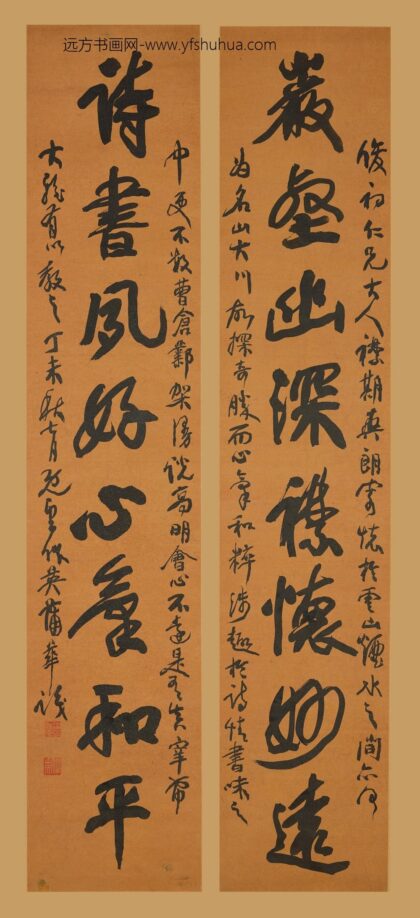 远方书画网-www.yfshuhua.com
岩壑幽深襟怀妙远
俊初仁兄古人襟期爽朗寄怀于云山烟水之间
为名山大川探奇胜而心气和粹涉趣于诗情书味之
诗书夙好心气和平
中更不数曹仓邺架漫说高明会心不远是
大雅有以教之丁未秋七月 英蒲华识